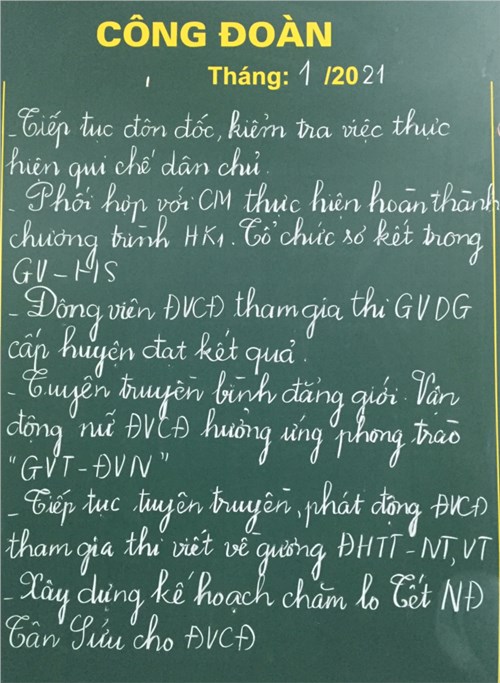 CÔNG ĐOÀN
Tháng: 1 /2021
- Tiếp tục đôn đốc, kiểm tra việc thực
hiện qui chế dân chủ.
- Phối hợp với CM thực hiện hoàn thành
chương trình HK1. Tổ chức sơ kết trong
GV-HS
- Động viên ĐVCĐ tham gia thi GVDG
cấp huyện đạt kết quả.
- Tuyên truyền bình đẳng giới. Vận
động nữ ĐVCĐ hưởng ứng phong trào
"GVT-ĐVN"
- Tiếp tục tuyên truyền, phát động ĐVCĐ
tham gia thi viết về gương ĐHTT-NT, VT
- Xây dựng kế hoạch chăm lo Tết NĐ
Tân Sửu cho ĐVCĐ